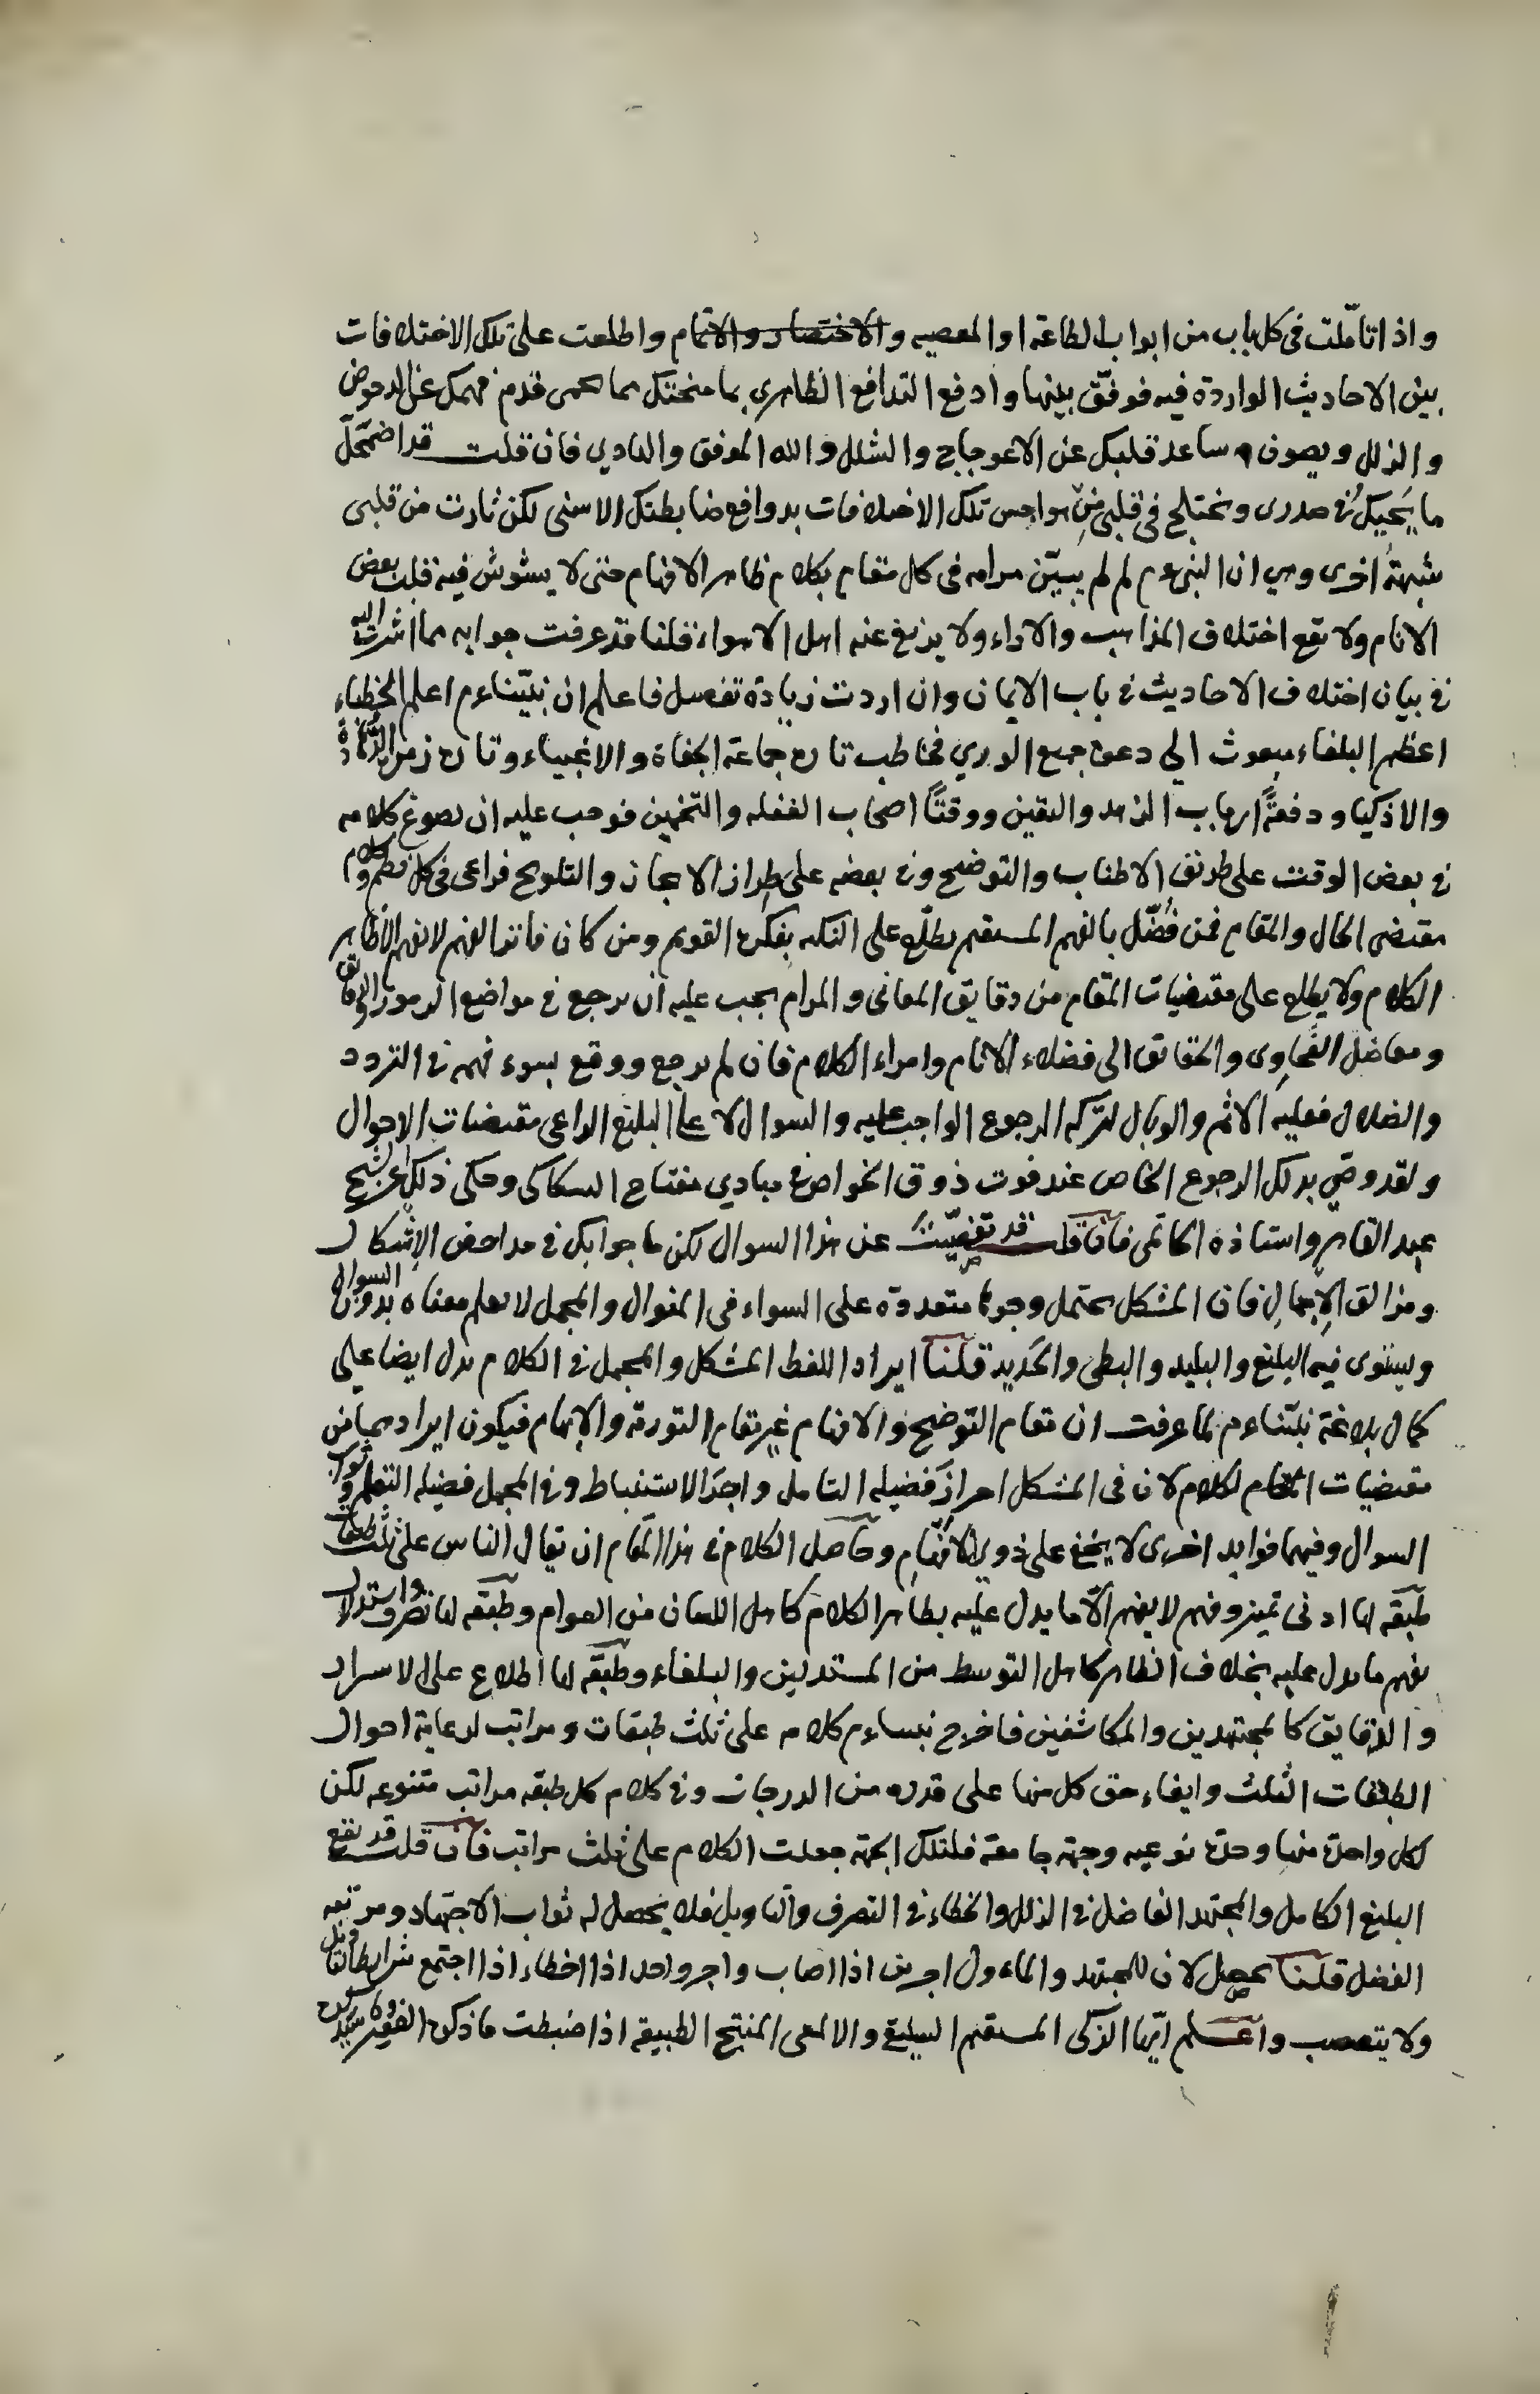 واذا تاملّت فى كل باب من ابواب الطاعة او المعصيه والاختصار والاتمام واطلعت على تلك الاختلافات
بين الاحاديث الواردة فيه فوفّق بينها وادفع التدافع الظاهرى بما منحتك مما يحمى قدم فهمك عن الدحوض
والزلل ويصون ساعد قلبك عن الاعوجاج والشلل والله الموفق والهادي فان قلت قد اضمحلّ
ما يَحيكُ فى صدرى ويختلج فى قلبى من هواجس تلك الاختلافات بدوافع ضابطتك الاسنى لكن ثارت من قلبى
شبهةٌ اخرى وهي ان النبى عم لم لم يبيّن مرامه فى كل مقام بكلام ظاهر الافهام حتى لا يشوش فيه قلب بعض
الانام ولا يقع اختلاف المذاهب والاراء ولا يزيغ عنه اهل الاهواء قلنا قد عرفت جوابه مما اشرت اليه
فى بيان اختلاف الاحاديث فى باب الايمان وان اردت زيادة تفصيل فاعلم ان نبيّنا عم اعلم الخطباء
اعظم البلغاء مبعوث الي دعوة جميع الوري فخاطب تارة جماعة الجفاة والاغبياء وتارة زمر
والاذكيا ودفعةً ارباب الزهد واليقين ووقتًا اصحاب الغفله والتخمين فوجب عليه ان يصوغ كلامه
فى بعض الوقت على طريق الاطناب والتوضيح وفى بعضه على طراز الايجاز والتلويح فراعى فى كل
مقتضى الحال والمقام فمن فُضّل بالفهم المستقيم يطلّع على النكته بفكره القويم ومن كان فاتر الفهم لا يفهم الا ظاهر
الكلام ولا يطلع على مقتضيات المقام من دقايق المعانى والمرام يجب عليه ان يرجع فى مواضع الرموز والدقايق
ومعاضل الفحاوِى والحقائق الى فضلاء الانام وامراء الكلام فان لم يرجع ووقع بسوء فهمه فى التردد
والضلال فعليه الاثم والوبال لتركه الرجوع الواجب عليه والسوال لا على البليغ الراعى مقتضيات الاحوال
ولقد وصّي بذلك الرجوع الخاص عند فوت ذوق الخواص فى مبادي مفتاح السكاكى وحكى ذلك عن الشيخ
عبد القاهر واستاذه الحاتمى فان قلت قد تفصّيتَ عن هذا السوال لكن ما جوابك فى مداحض الاشكال
ومزالق الاِجمالِ فان المشكل يحتمل وجوها متعددة على السواء فى المنوال والمجمل لا يعلم معناه بدون السوال
ويستوى فيه البليغ والبليد والبطى والحَديد قلنا ايراد اللفظ المشكل والمجمل فى الكلام يدل ايضا على
كمال بلاغة نبيّنا عم لما عرفت ان مقام التوضيح والافهام غير مقام التورية والابهام فيكون ايرادهما من
مقتضيات المقام لكلام لان فى المشكل احرازَ فضيله التامل واجرَ الاستنباط وفى المجمل فضيله التعلم وثواب
السوال وفيهما فوايد اخرى لا يخفى على ذوى الافهام وحاصل الكلام فى هذا المقام ان يقال الناس على ثلث طبقات
طبقه لها ادنى تميز وفهم لا يفهم الّا ما يدل عليه بظاهر الكلام كاهل اللسان من العوام وطبقه لها تصرف واستدلال
يفهم ما يدل عليه بخلاف الظاهر كاهل التوسط من المستدلين والبلغاء وطبقه لها اطلاع على الاسرار
والدقايق كالمجتهدين والمكاشفين فاخرج نبينا عم كلامه على ثلث طبقات ومراتب لرعاية احوال
الطبقات الثلث وايفاء حق كل منها على قدره من الدرجات وفى كلام كل طبقه مراتب متنوعه لكن
لكل واحدة منها وحدة نوعيه وجهة جامعة فلتلك الجهة جعلت الكلام على ثلث مراتب فان قلت قد يقع
البليغ الكامل والمجتهد الفاضل فى الزلل والخطاء فى التصرف والتاويل فلا يحصل له ثواب الاجتهاد ومرتبه
الفضل قلنا يحصل لان للمجتهد والماءول اجرين اذا اصاب واجر واحد اذا اخطاء اذا اجتمع شرايط التاويل
ولا يتعصب واعلم ايّها الزكى المستقيم السليقة والالمعى المنتج الطبيعة اذا ضبطت ما ذكره الفقير